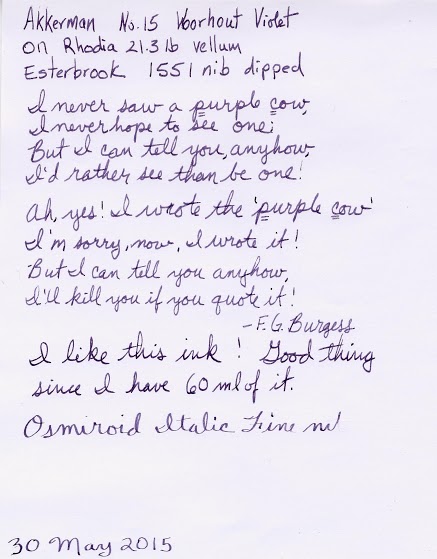 Akkerman No. 15 Voorhout Violet
on Rhodia 21.3 lb vellum
Esterbrook 1551 nib dipped
I never saw a purple cow,
I never hope to see one;
But I can tell you, anyhow,
I'd rather see than be one!
Ah, yes! I wrote the 'purple cow'
I'm sorry, now, I wrote it!
But I can tell you anyhow,
I'll kill you if you quote it!
- F.G. Burgess
I like this ink! Good thing
since I have 60 ml of it.
Osmiroid Italic Fine
30 May 2015